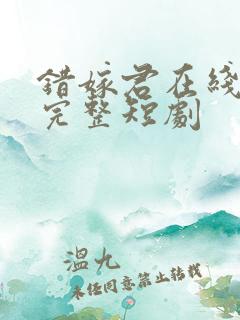 错嫁君在线
完整短剧
温九
未经同意禁止转载